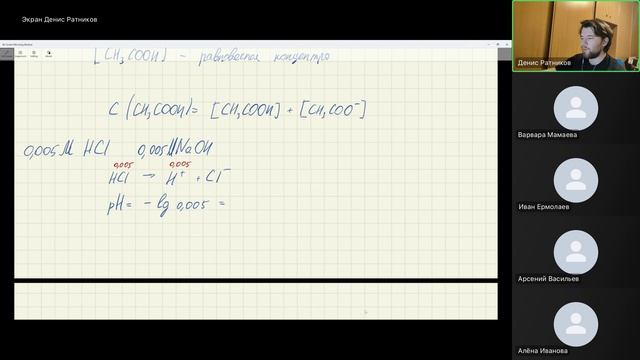 Экран Денис Ратников
[CH₃COOH] - равновесная концентра
C (CH₃COOH) = [CH₃COOH] + [CH₃COO⁻]
0,005M HCl 0,005M NaOH
0,005 0,005
HCl → H⁺ + Cl⁻
pH = - lg 0,005 =
Денис Ратников
Варвара Мамаева
Иван Ермолаев
Арсений Васильев
Алёна Иванова